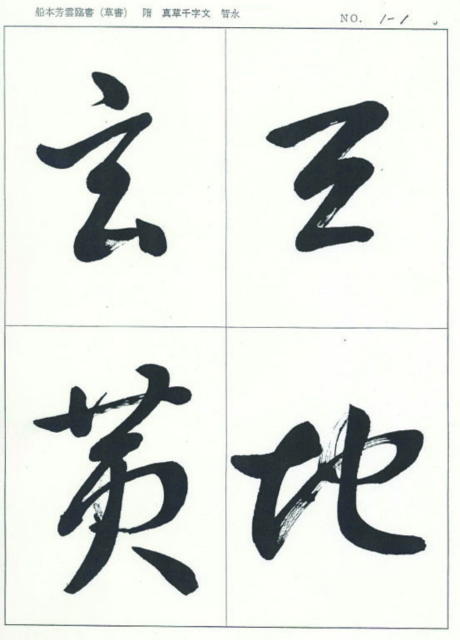 船本芳雲臨書（草書） 隋 真草千字文 智永
NO. 1-1
天地
玄黄